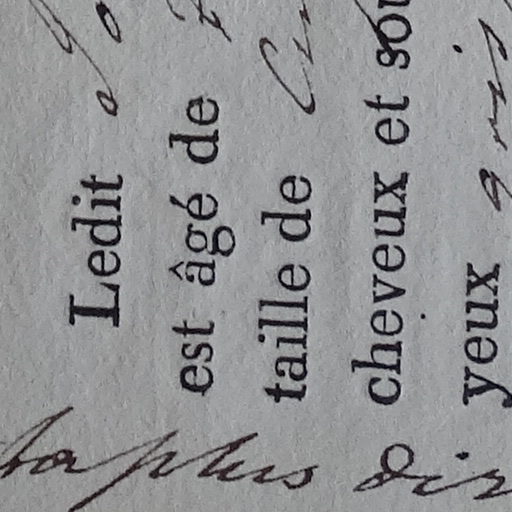 Ledit
est âgé de
taille de
cheveux et sou
yeux gris
plus dix